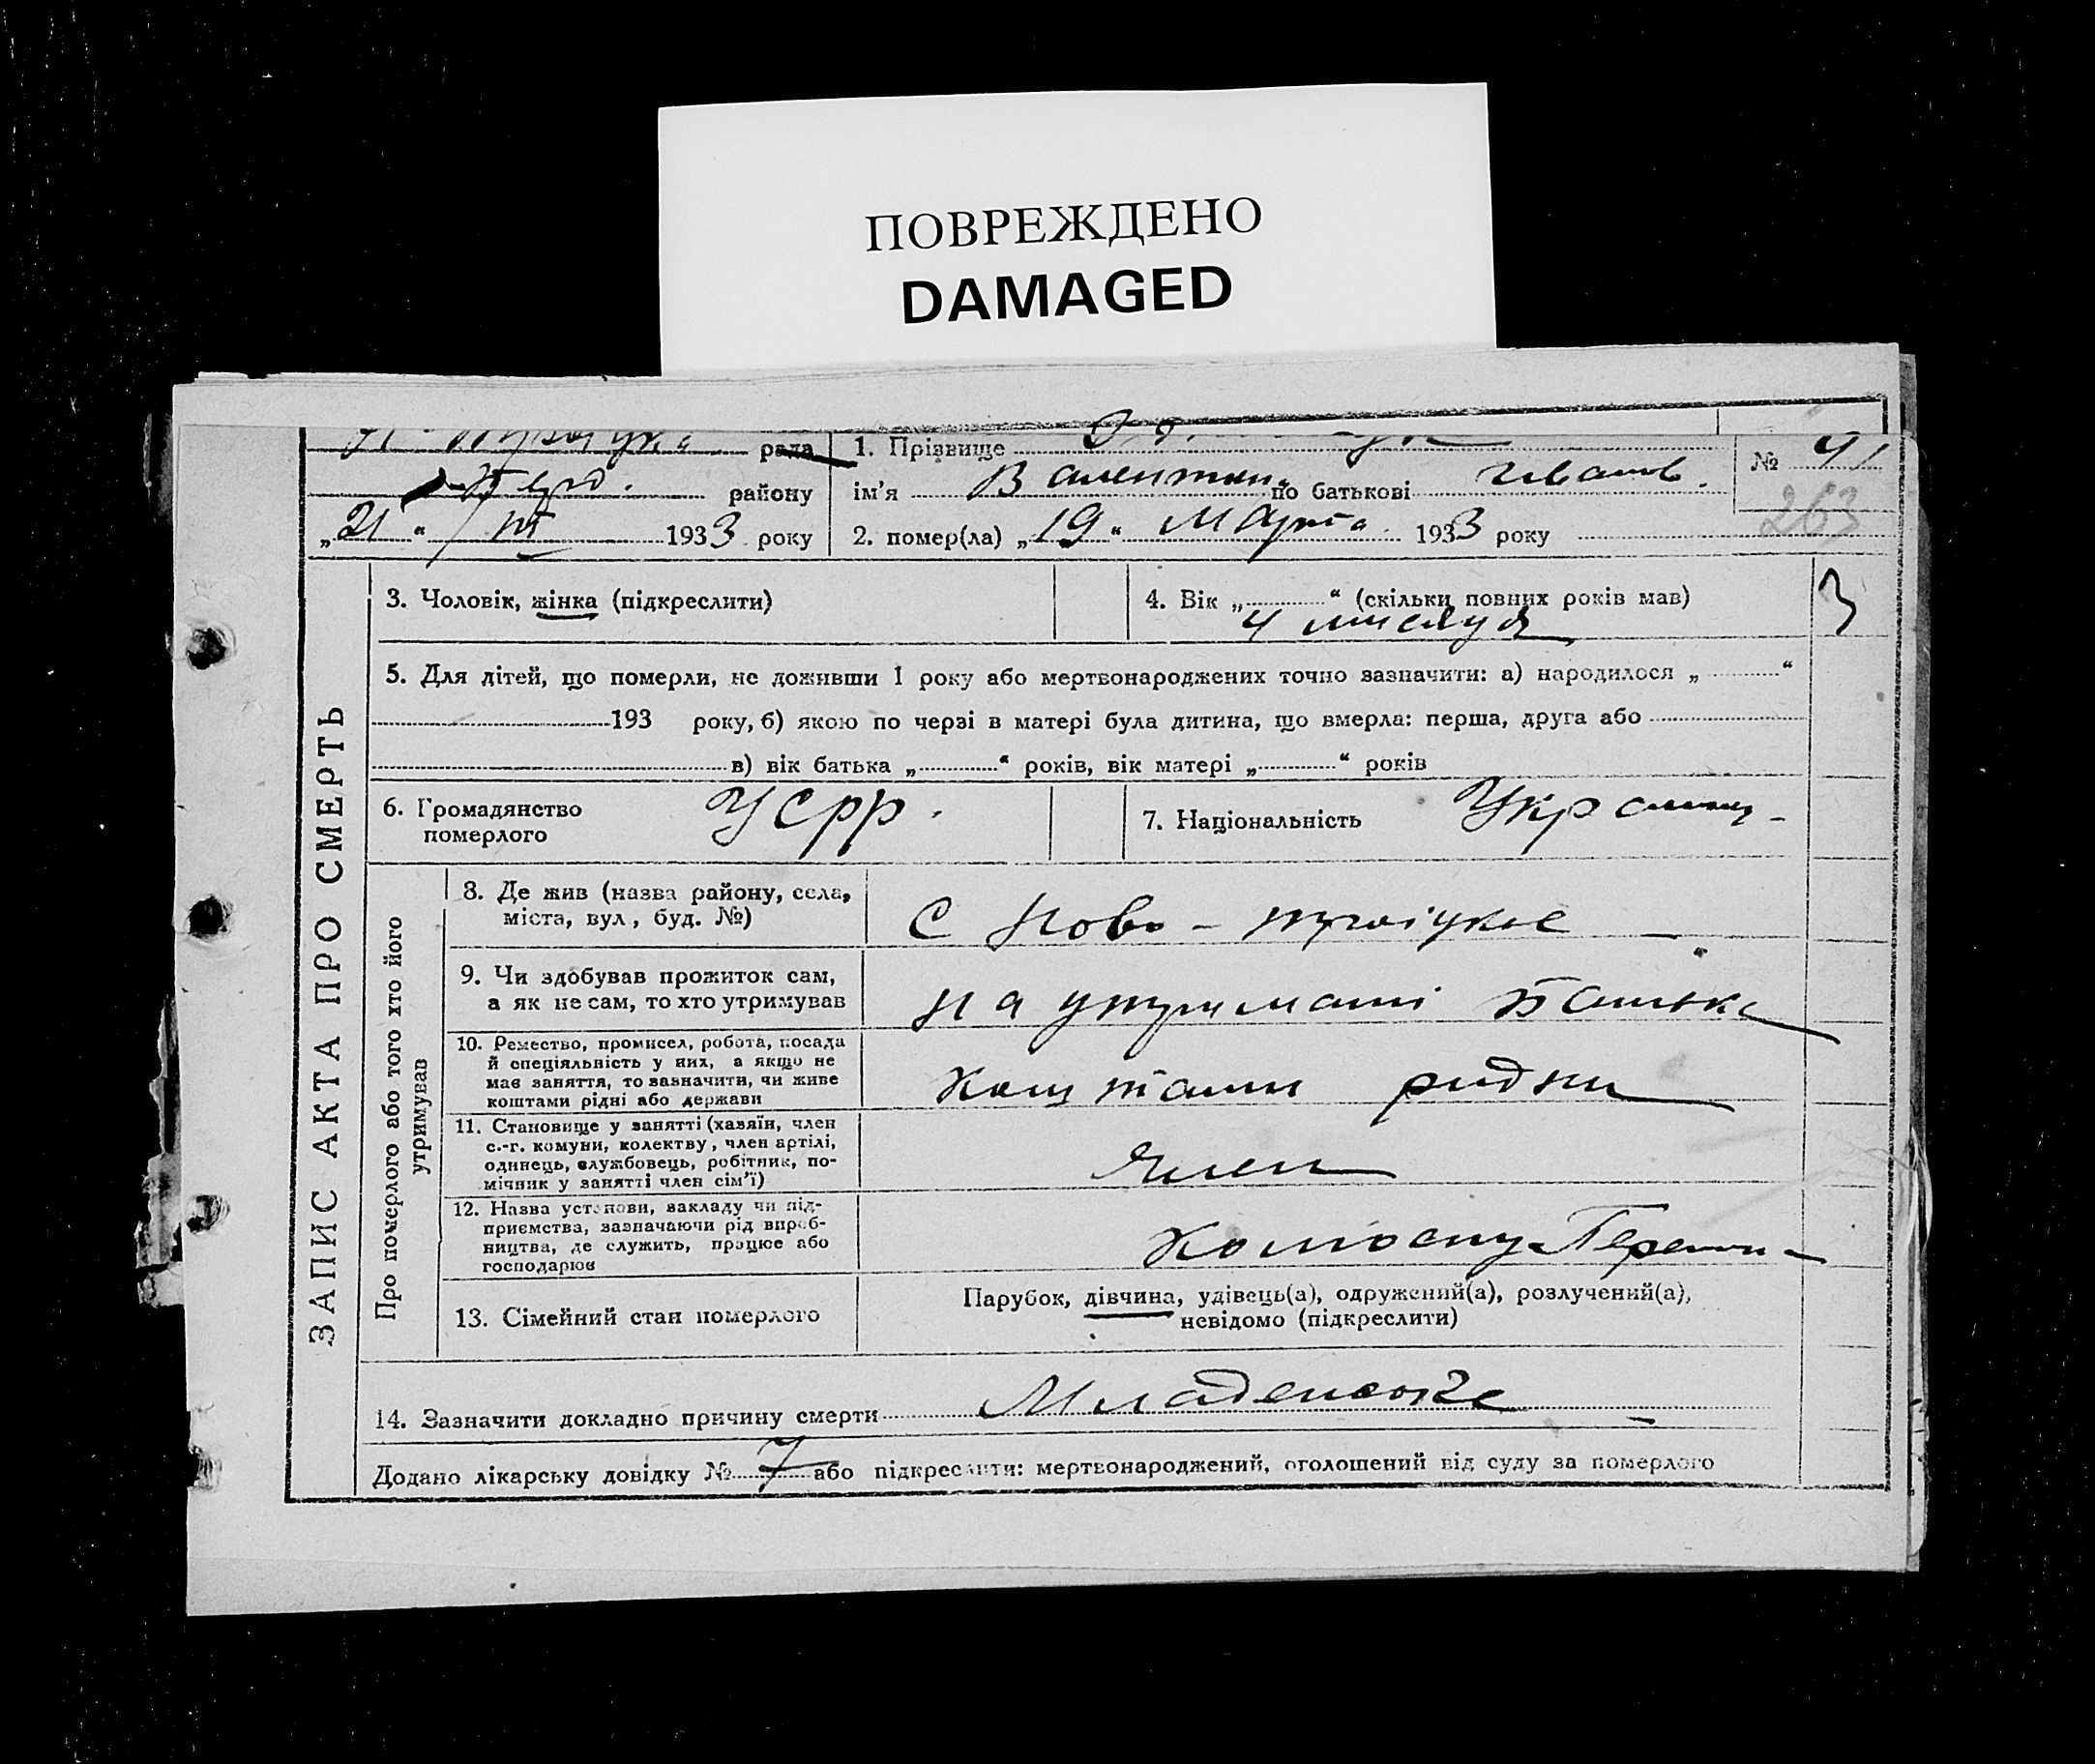 ПОВРЕЖДЕНО
DAMAGED
рада
району
„21“ III 1933 року
1. Прізвище
ім'я Валентин. по батькові Иванов.
2. помер(ла) „19“ Марта 1933 року
№ 41
263
3
ЗАПИС АКТА ПРО СМЕРТЬ
3. Чоловік, жінка (підкреслити)
4. Вік „ “ (скільки повних років мав)
4 месяця
5. Для дітей, що померли, не доживши 1 року або мертвонароджених точно зазначити: а) народилося „ “
193 року, б) якою по черзі в матері була дитина, що вмерла: перша, друга або
в) вік батька „ “ років, вік матері „ “ років
6. Громадянство
померлого
УСРР.
7. Національність
Про померлого або того хто його
утримував
8. Де жив (назва району, села,
міста, вул, буд. №)
С Ново-троіцкое
9. Чи здобував прожиток сам,
а як не сам, то хто утримував
На утримані Батька
10. Ремество, промисел, робота, посада
й спеціяльність у них, а якщо не
має заняття, то зазначити, чи живе
коштами рідні або держави
Коштами ридни
11. Становище у занятті (хазяїн, член
с.-г. комуни, колективу, член артілі,
одинець, службовець, робітник, по-
мічник у занятті член сім'ї)
Член
12. Назва установи, закладу чи під-
приємства, зазначаючи рід вироб-
ництва, де служить, працює або
господарює
13. Сімейний стан померлого
Парубок, дівчина, удівець(а), одружений(а), розлучений(а),
невідомо (підкреслити)
14. Зазначити докладно причину смерти
Додано лікарську довідку № 7 або підкреслити: мертвонароджений, оголошений від суду за померлого